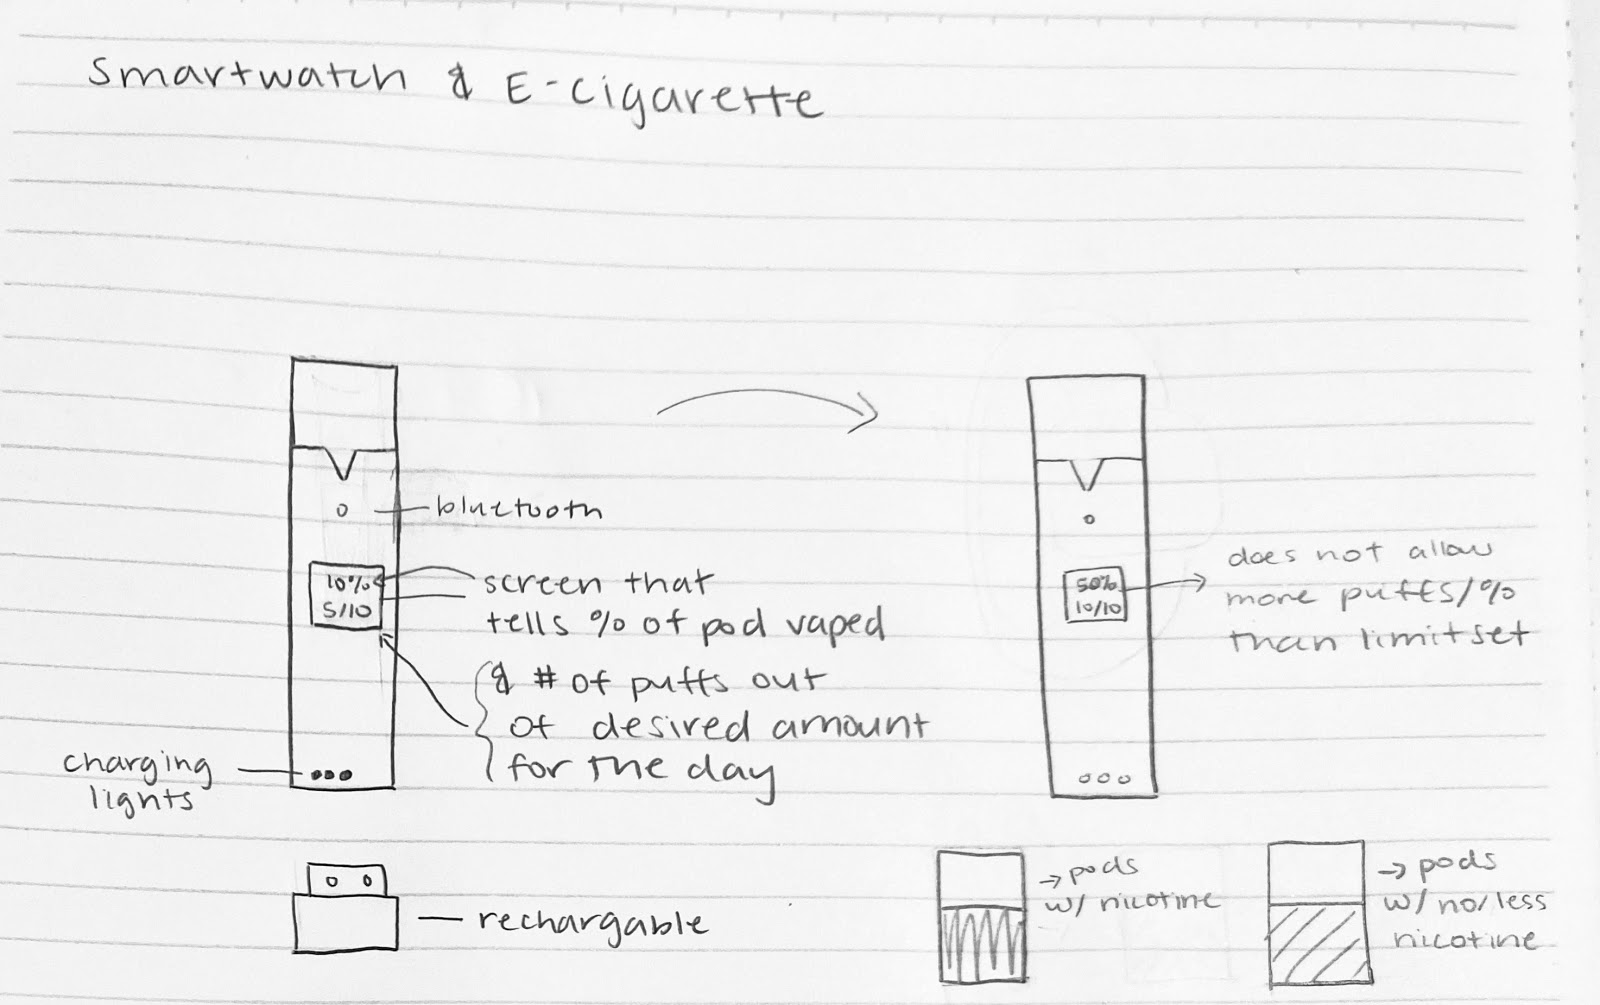 Smartwatch & E-cigarette
bluetooth
10%
5/10
screen that
tells % of pod vaped
& # of puffs out
of desired amount
for the day
charging
lights
rechargable
50%
10/10
does not allow
more puffs/%
than limit set
→ pods
w/ nicotine
→ pods
w/ no/less
nicotine